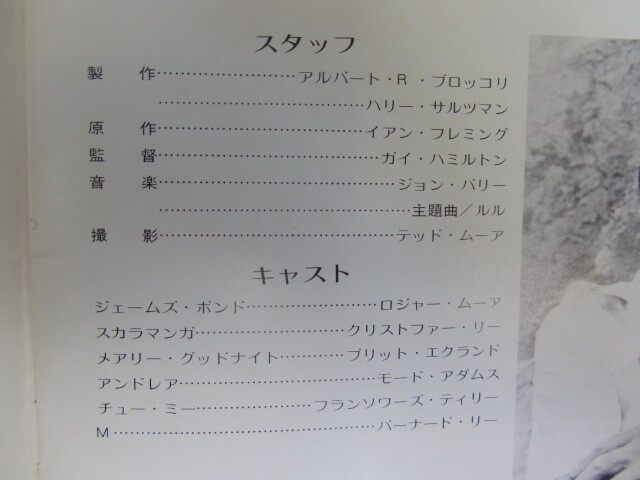 スタッフ
製　作……………………アルバート・R・ブロッコリ
……………………………ハリー・サルツマン
原　作……………………………イアン・フレミング
監　督………………………………ガイ・ハミルトン
音　楽…………………………………ジョン・バリー
……………………………………主題曲／ルル
撮　影…………………………………テッド・ムーア
キャスト
ジェームズ・ボンド…………………ロジャー・ムーア
スカラマンガ……………………クリストファー・リー
メアリー・グッドナイト………ブリット・エクランド
アンドレア……………………………モード・アダムス
チュー・ミー………………フランソワーズ・ティリー
M……………………………………バーナード・リー